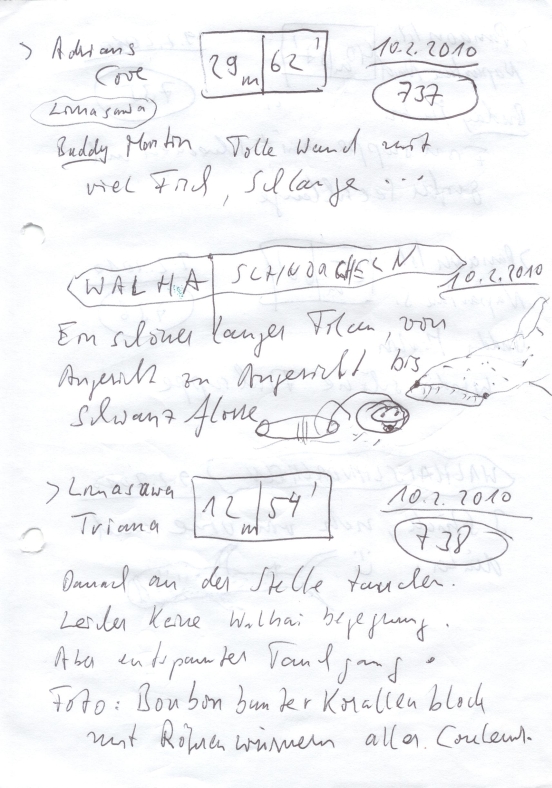 > Adrians Cove
29 m | 62'
10.2.2010
737
Limasawa
Buddy Morton Tolle Wand mit
viel Fisch, Schlange ...
WALHAI SCHNORCHELN
10.2.2010
Ein schöner langer Törn, von
Angesicht zu Angesicht bis
Schwanzflosse
> Limasawa
Triana
12 m | 54'
10.2.2010
738
Danach an der Stelle tauchen.
Leider keine Walhai begegnung.
Aber entspannter Tauchgang.
Foto: Bonbon bunter Korallenblock
mit Röhrenwürmern aller Couleur.